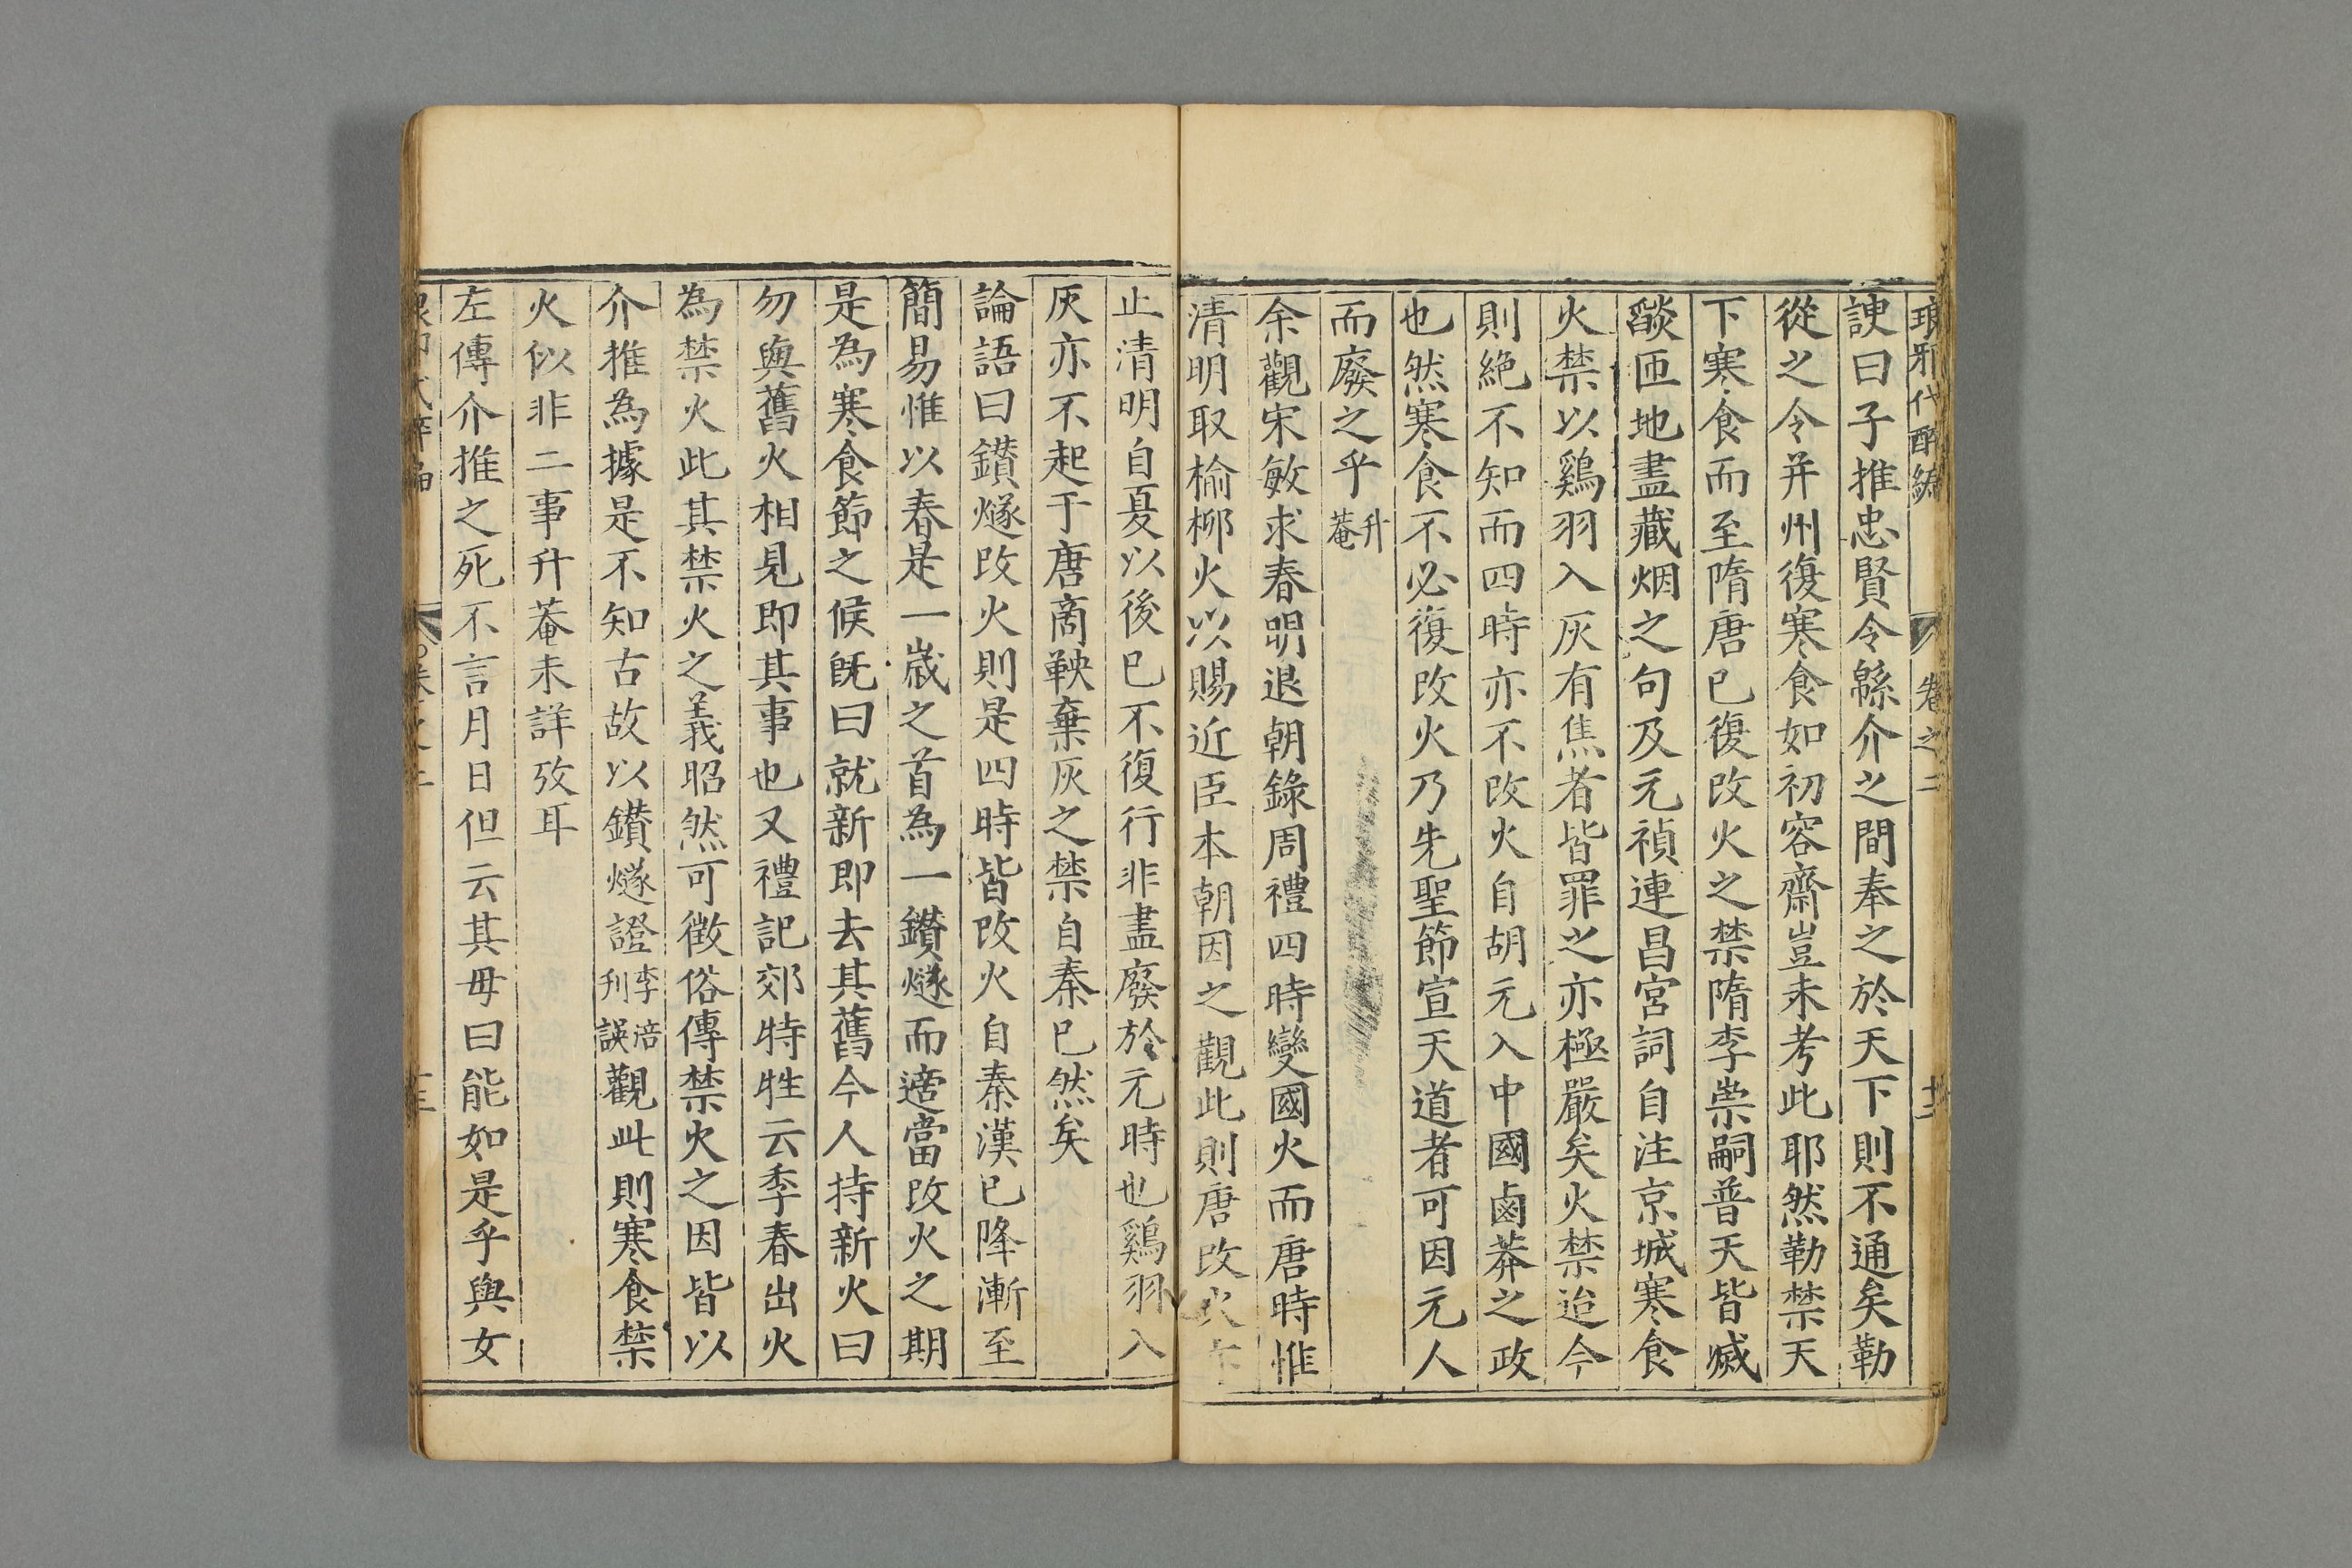 瑯邪代醉編 卷之二 十二
諛曰子推忠賢令緜介之間奉之於天下則不通矣勒
從之令并州復寒食如初容齋豈未考此耶然勒禁天
下寒食而至隋唐已復改火之禁隋李崇嗣普天皆滅
燄匝地盡藏烟之句及元禎連昌宮詞自注京城寒食
火禁以鷄羽入灰有焦者皆罪之亦極嚴矣火禁迨今
則絶不知而四時亦不改火自胡元入中國鹵莽之政
也然寒食不必復改火乃先聖節宣天道者可因元人
而廢之乎升菴
余觀宋敏求春明退朝錄周禮四時變國火而唐時惟
清明取榆柳火以賜近臣本朝因之觀此則唐改火亦
止清明自夏以後已不復行非盡廢於元時也鷄羽入
灰亦不起于唐商鞅棄灰之禁自秦已然矣
論語曰鑽燧改火則是四時皆改火自秦漢已降漸至
簡易惟以春是一嵗之首為一鑽燧而適當改火之期
是為寒食節之候旣曰就新即去其舊今人持新火曰
勿與舊火相見即其事也又禮記郊特牲云季春出火
為禁火此其禁火之義昭然可徵俗傳禁火之因皆以
介推為據是不知古故以鑽燧證李涪刋誤觀此則寒食禁
火似非二事升菴未詳攷耳
左傳介推之死不言月日但云其毋曰能如是乎與女